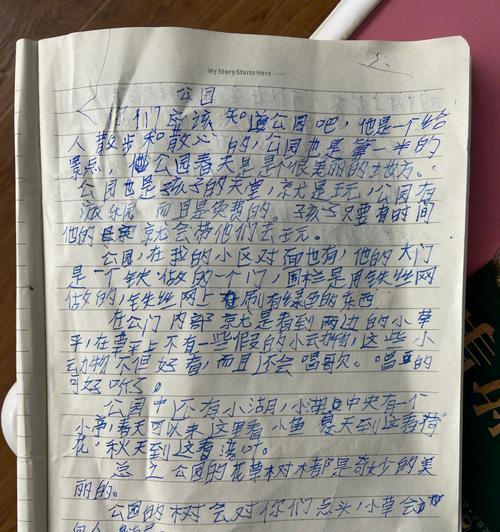 My Story Starts Here
公园
你们应该知道公园吧，他是一个给
人散步和散心的，公园也是第一美的
景点，公园春天是是个很美丽的地方。
公园也是孩子的天堂，京尤是王元，公园有
游乐园 而且是免费的。孩子只要有时间
他的 京尤会带他们去王元。
公园，在我的小区对面也有，他的大门
是一个铁做的一个门，围栏是用铁丝网
做的，铁丝网上 刷有绿色的东西
在公门内部京尤是看到两边的小草
平，在草平上不有一些假的小动物，这些小
动物不但好看，而且还会唱歌。唱 的
可好听了。
公园中还有小湖，小湖中央有一个
小亭，春天可以来这里看小鱼 夏天到这看荷
花，秋天到这看
总之公园的花草树木都是奇妙的美
丽的。
公园的树会对你们点头，小草会
向人